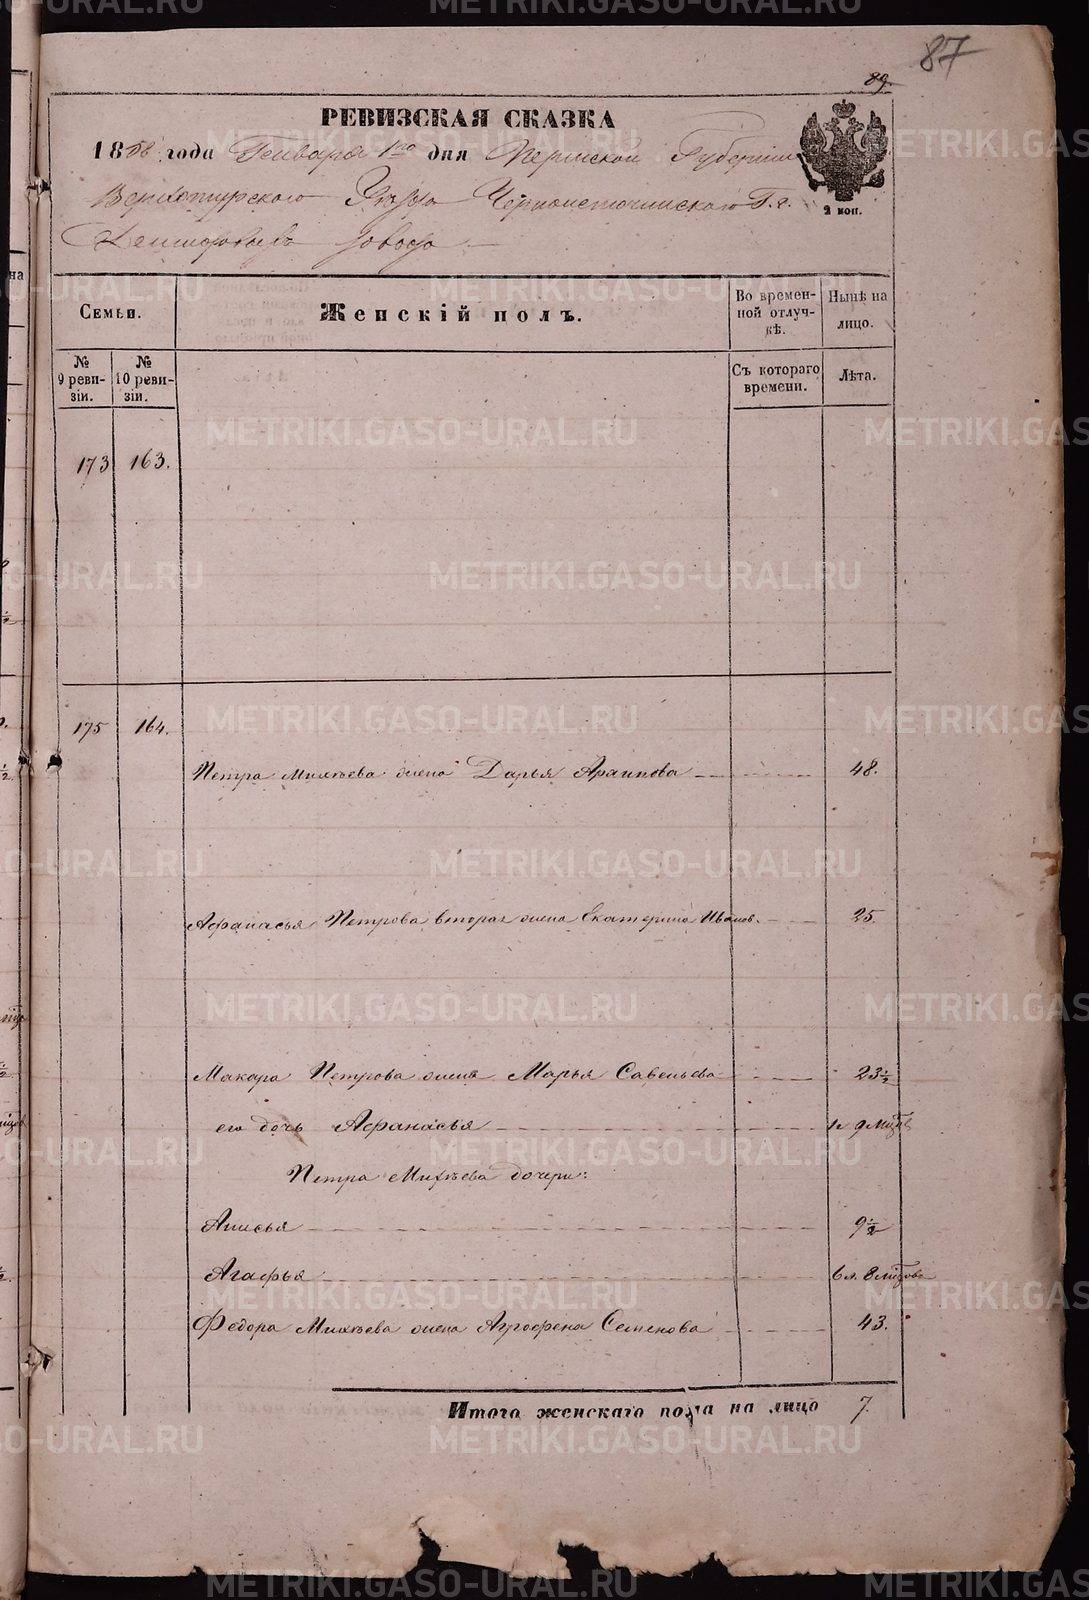 87
89.
РЕВИЗСКАЯ СКАЗКА
1858 года Генваря 1го дня Пермской Губернии
Верхотурскаго Уезда Черноисточинскаго Г.г.
Демидовыхъ завода
2 коп.
Семьи.
Женскій полъ.
Во времен-
ной отлуч-
кѣ.
Нынѣ на
лицо.
№
9 реви-
зіи.
№
10 реви-
зіи.
Съ котораго
времени.
Лѣта.
173 163.
175 164.
Петра Михѣева жена Дарья Архипова 48.
Афанасья Петрова вторая жена Екатерина Иванов. 25.
Макара Петрова жена Марья Савельева 23½
его дочь Афанасья 9 мцовъ
Петра Михѣева дочери:
Анисья 9½
Агафья 6 л. 8 мцовъ
Федора Михѣева жена Агрофена Семенова 43.
Итого женскаго пола на лицо 7.
METRIKI.GASO-URAL.RU